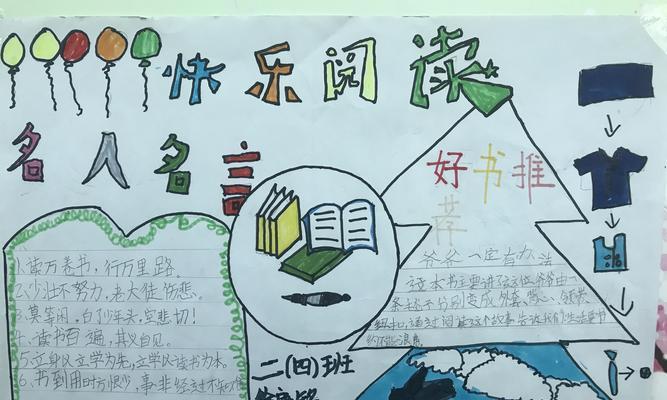 快乐阅读
名人名言
好书推荐
1.读万卷书，行万里路。
2.少壮不努力，老大徒伤悲。
3.莫等闲，白了少年头，空悲切！
4.读书百遍，其义自见。
5.立身以立学为先，立学以读书为本。
6.书到用时方恨少，事非经过不知
爷爷一定有办法
这本书主要讲了这位爷爷由一
条毯子分别变成外套、背心、领带
通过阅读这个故事告诉我们生活要节
约不能浪费
二(四)班